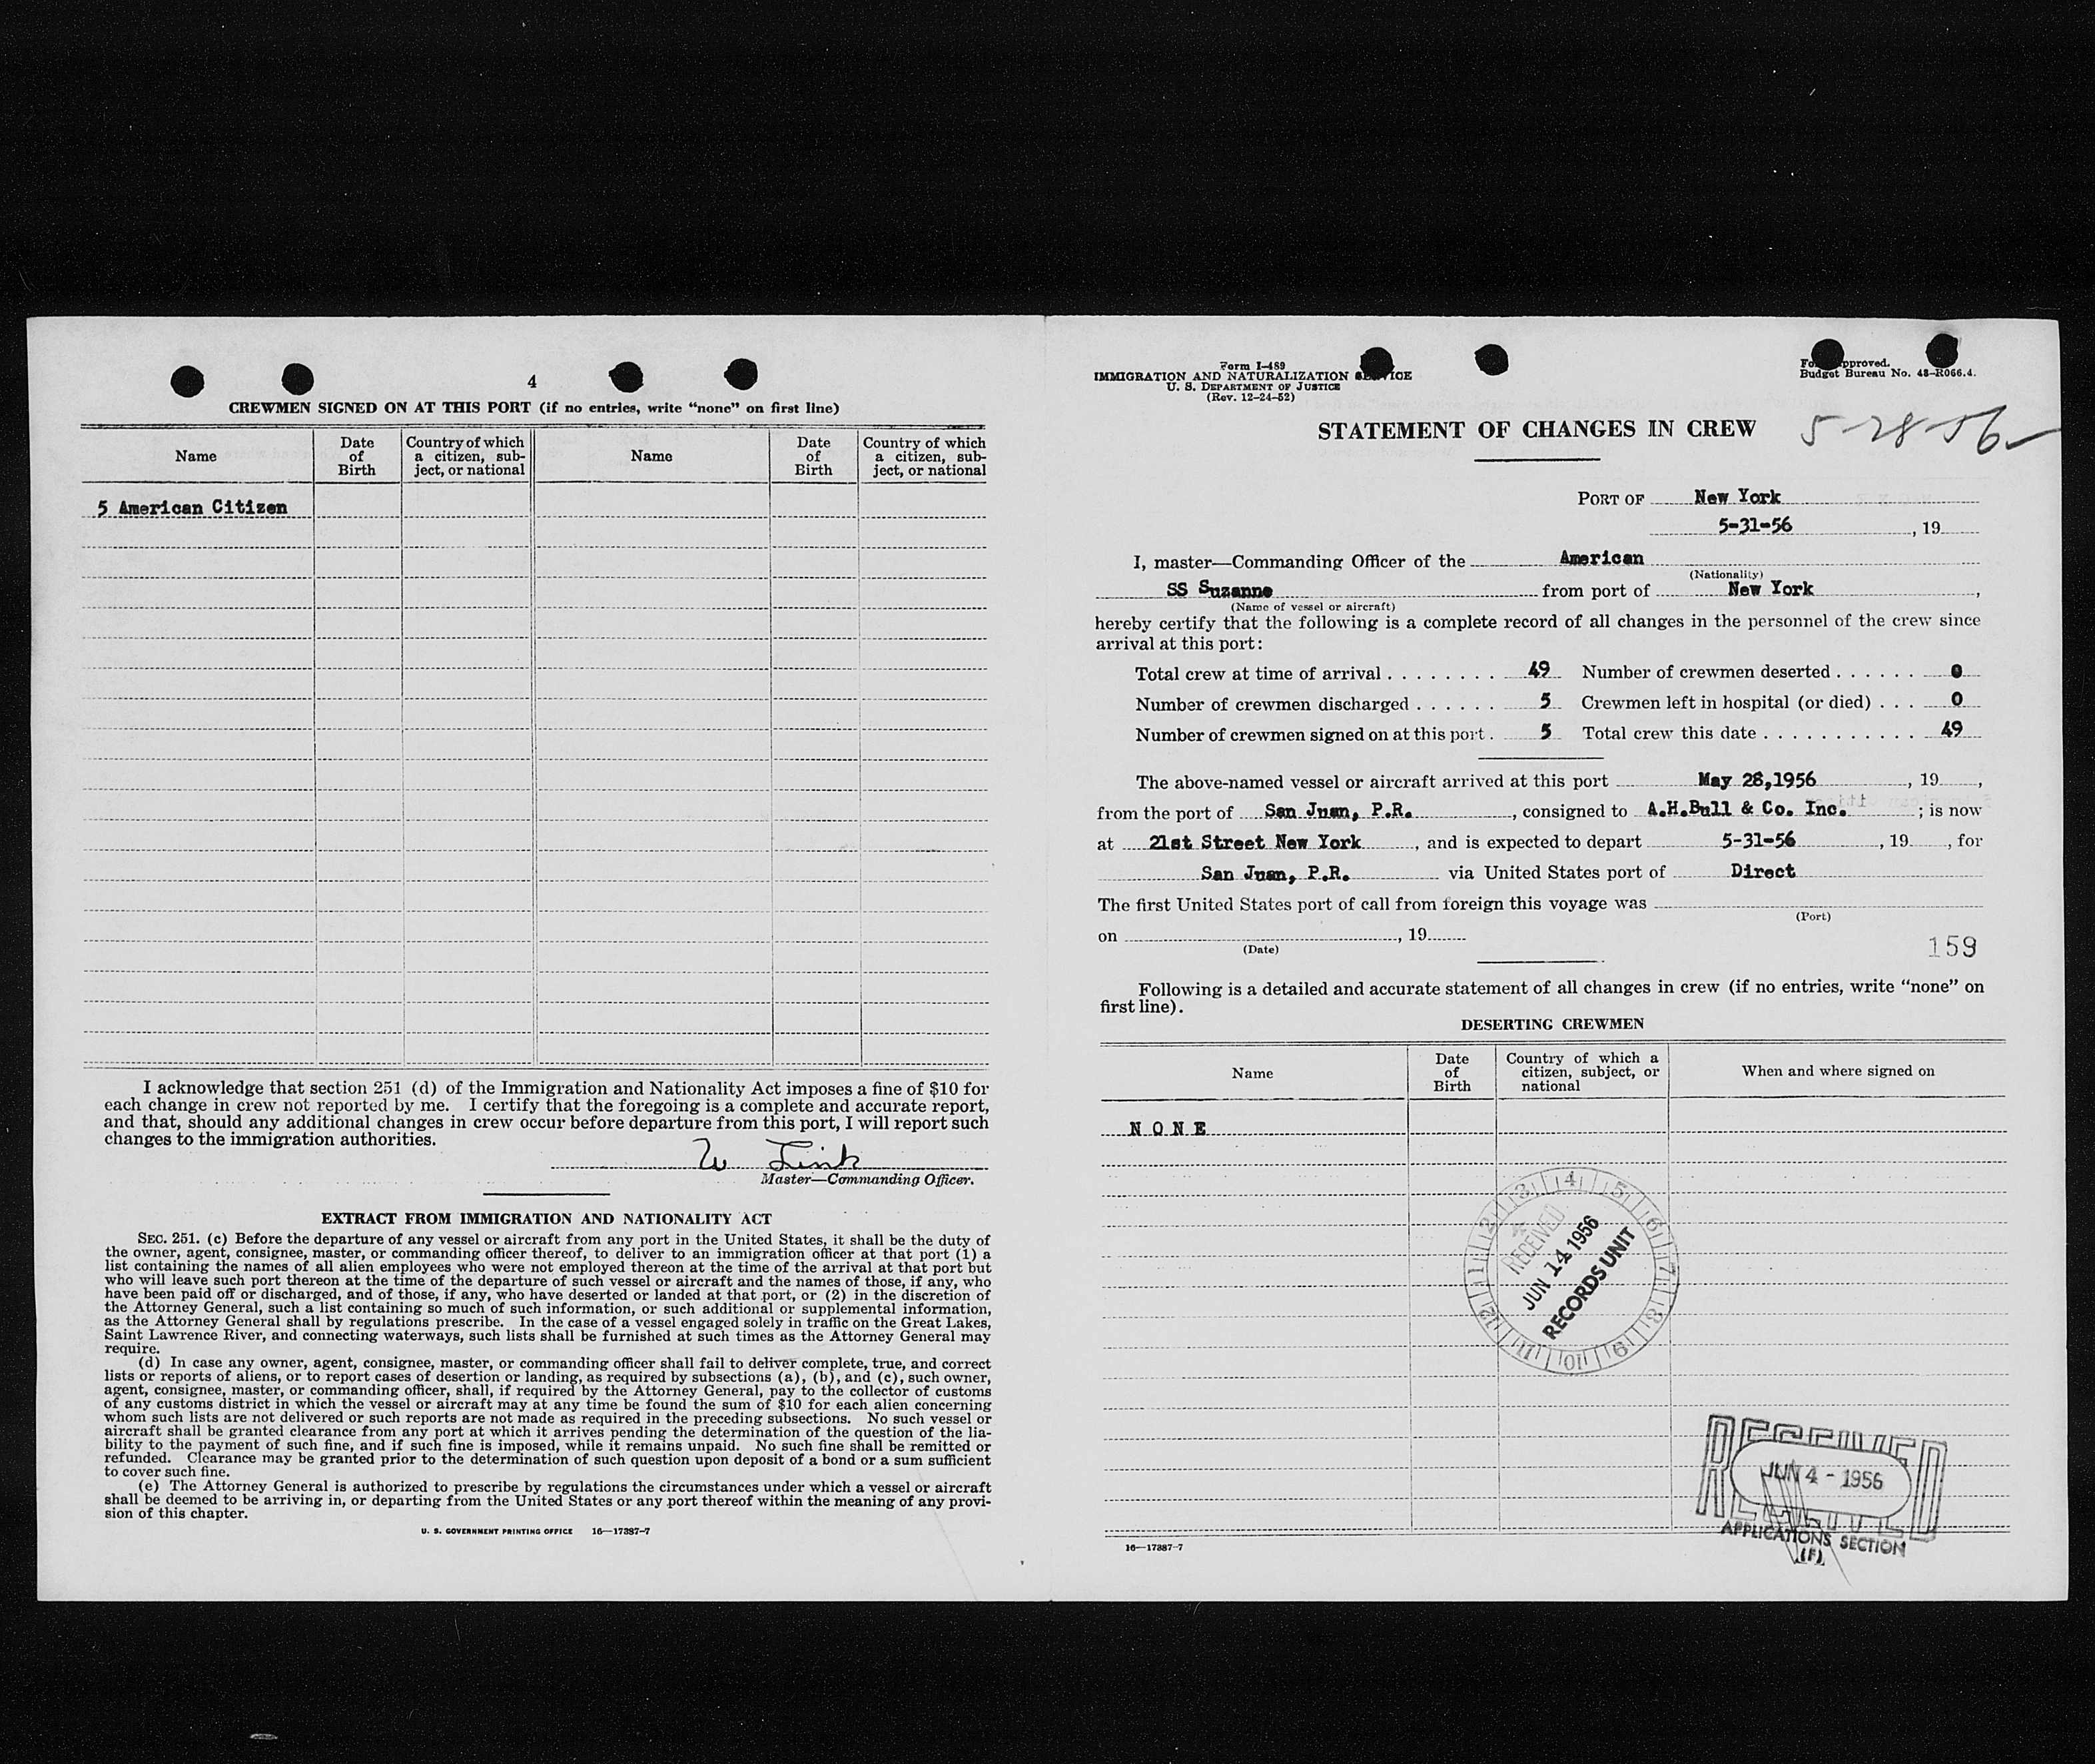 4
CREWMEN SIGNED ON AT THIS PORT (if no entries, write “none” on first line)
Name
Date of Birth
Country of which a citizen, subject, or national
Name
Date of Birth
Country of which a citizen, subject, or national
5 American Citizen
I acknowledge that section 251 (d) of the Immigration and Nationality Act imposes a fine of $10 for
each change in crew not reported by me. I certify that the foregoing is a complete and accurate report,
and that, should any additional changes in crew occur before departure from this port, I will report such
changes to the immigration authorities.
W Link
Master—Commanding Officer.
EXTRACT FROM IMMIGRATION AND NATIONALITY ACT
SEC. 251. (c) Before the departure of any vessel or aircraft from any port in the United States, it shall be the duty of
the owner, agent, consignee, master, or commanding officer thereof, to deliver to an immigration officer at that port (1) a
list containing the names of all alien employees who were not employed thereon at the time of the arrival at that port but
who will leave such port thereon at the time of the departure of such vessel or aircraft and the names of those, if any, who
have been paid off or discharged, and of those, if any, who have deserted or landed at that port, or (2) in the discretion of
the Attorney General, such a list containing so much of such information, or such additional or supplemental information,
as the Attorney General shall by regulations prescribe. In the case of a vessel engaged solely in traffic on the Great Lakes,
Saint Lawrence River, and connecting waterways, such lists shall be furnished at such times as the Attorney General may
require.
(d) In case any owner, agent, consignee, master, or commanding officer shall fail to deliver complete, true, and correct
lists or reports of aliens, or to report cases of desertion or landing, as required by subsections (a), (b), and (c), such owner,
agent, consignee, master, or commanding officer, shall, if required by the Attorney General, pay to the collector of customs
of any customs district in which the vessel or aircraft may at any time be found the sum of $10 for each alien concerning
whom such lists are not delivered or such reports are not made as required in the preceding subsections. No such vessel or
aircraft shall be granted clearance from any port at which it arrives pending the determination of the question of the lia-
bility to the payment of such fine, and if such fine is imposed, while it remains unpaid. No such fine shall be remitted or
refunded. Clearance may be granted prior to the determination of such question upon deposit of a bond or a sum sufficient
to cover such fine.
(e) The Attorney General is authorized to prescribe by regulations the circumstances under which a vessel or aircraft
shall be deemed to be arriving in, or departing from the United States or any port thereof within the meaning of any provi-
sion of this chapter.
U. S. GOVERNMENT PRINTING OFFICE 16—17387-7
Form I-489
IMMIGRATION AND NATURALIZATION SERVICE
U. S. DEPARTMENT OF JUSTICE
(Rev. 12-24-52)
approved.
Budget Bureau No. 43-R066.4.
STATEMENT OF CHANGES IN CREW
5-28-56
PORT OF New York
5-31-56, 19
I, master—Commanding Officer of the American
(Nationality)
SS Suzanne from port of New York,
(Name of vessel or aircraft)
hereby certify that the following is a complete record of all changes in the personnel of the crew since
arrival at this port:
Total crew at time of arrival 49 Number of crewmen deserted 0
Number of crewmen discharged 5 Crewmen left in hospital (or died) 0
Number of crewmen signed on at this port. 5 Total crew this date 49
The above-named vessel or aircraft arrived at this port May 28,1956, 19,
from the port of San Juan, P.R., consigned to A.H.Bull & Co. Inc. ; is now
at 21st Street New York, and is expected to depart 5-31-56, 19, for
San Juan, P.R. via United States port of Direct
The first United States port of call from foreign this voyage was
(Port)
on , 19
(Date)
159
Following is a detailed and accurate statement of all changes in crew (if no entries, write “none” on
first line).
DESERTING CREWMEN
Name
Date of Birth
Country of which a citizen, subject, or national
When and where signed on
N O N E
1 2 3 4 5 6 7 8 9 10 11 12
RECEIVED
JUN 14 1956
RECORDS UNIT
RECEIVED
JUN 4 - 1956
APPLICATIONS SECTION
(F)
16—17387-7